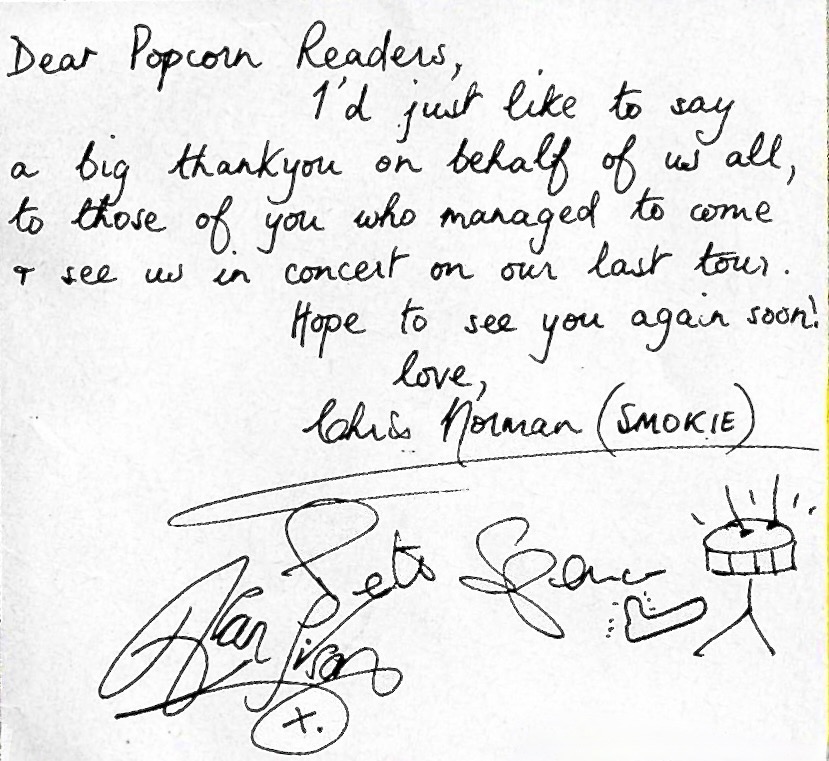 Dear Popcorn Readers,
I'd just like to say
a big thankyou on behalf of us all,
to those of you who managed to come
+ see us in concert on our last tour.
Hope to see you again soon!
love,
Chris Norman (SMOKIE)
Pete Spencer
Alan Silson
x.